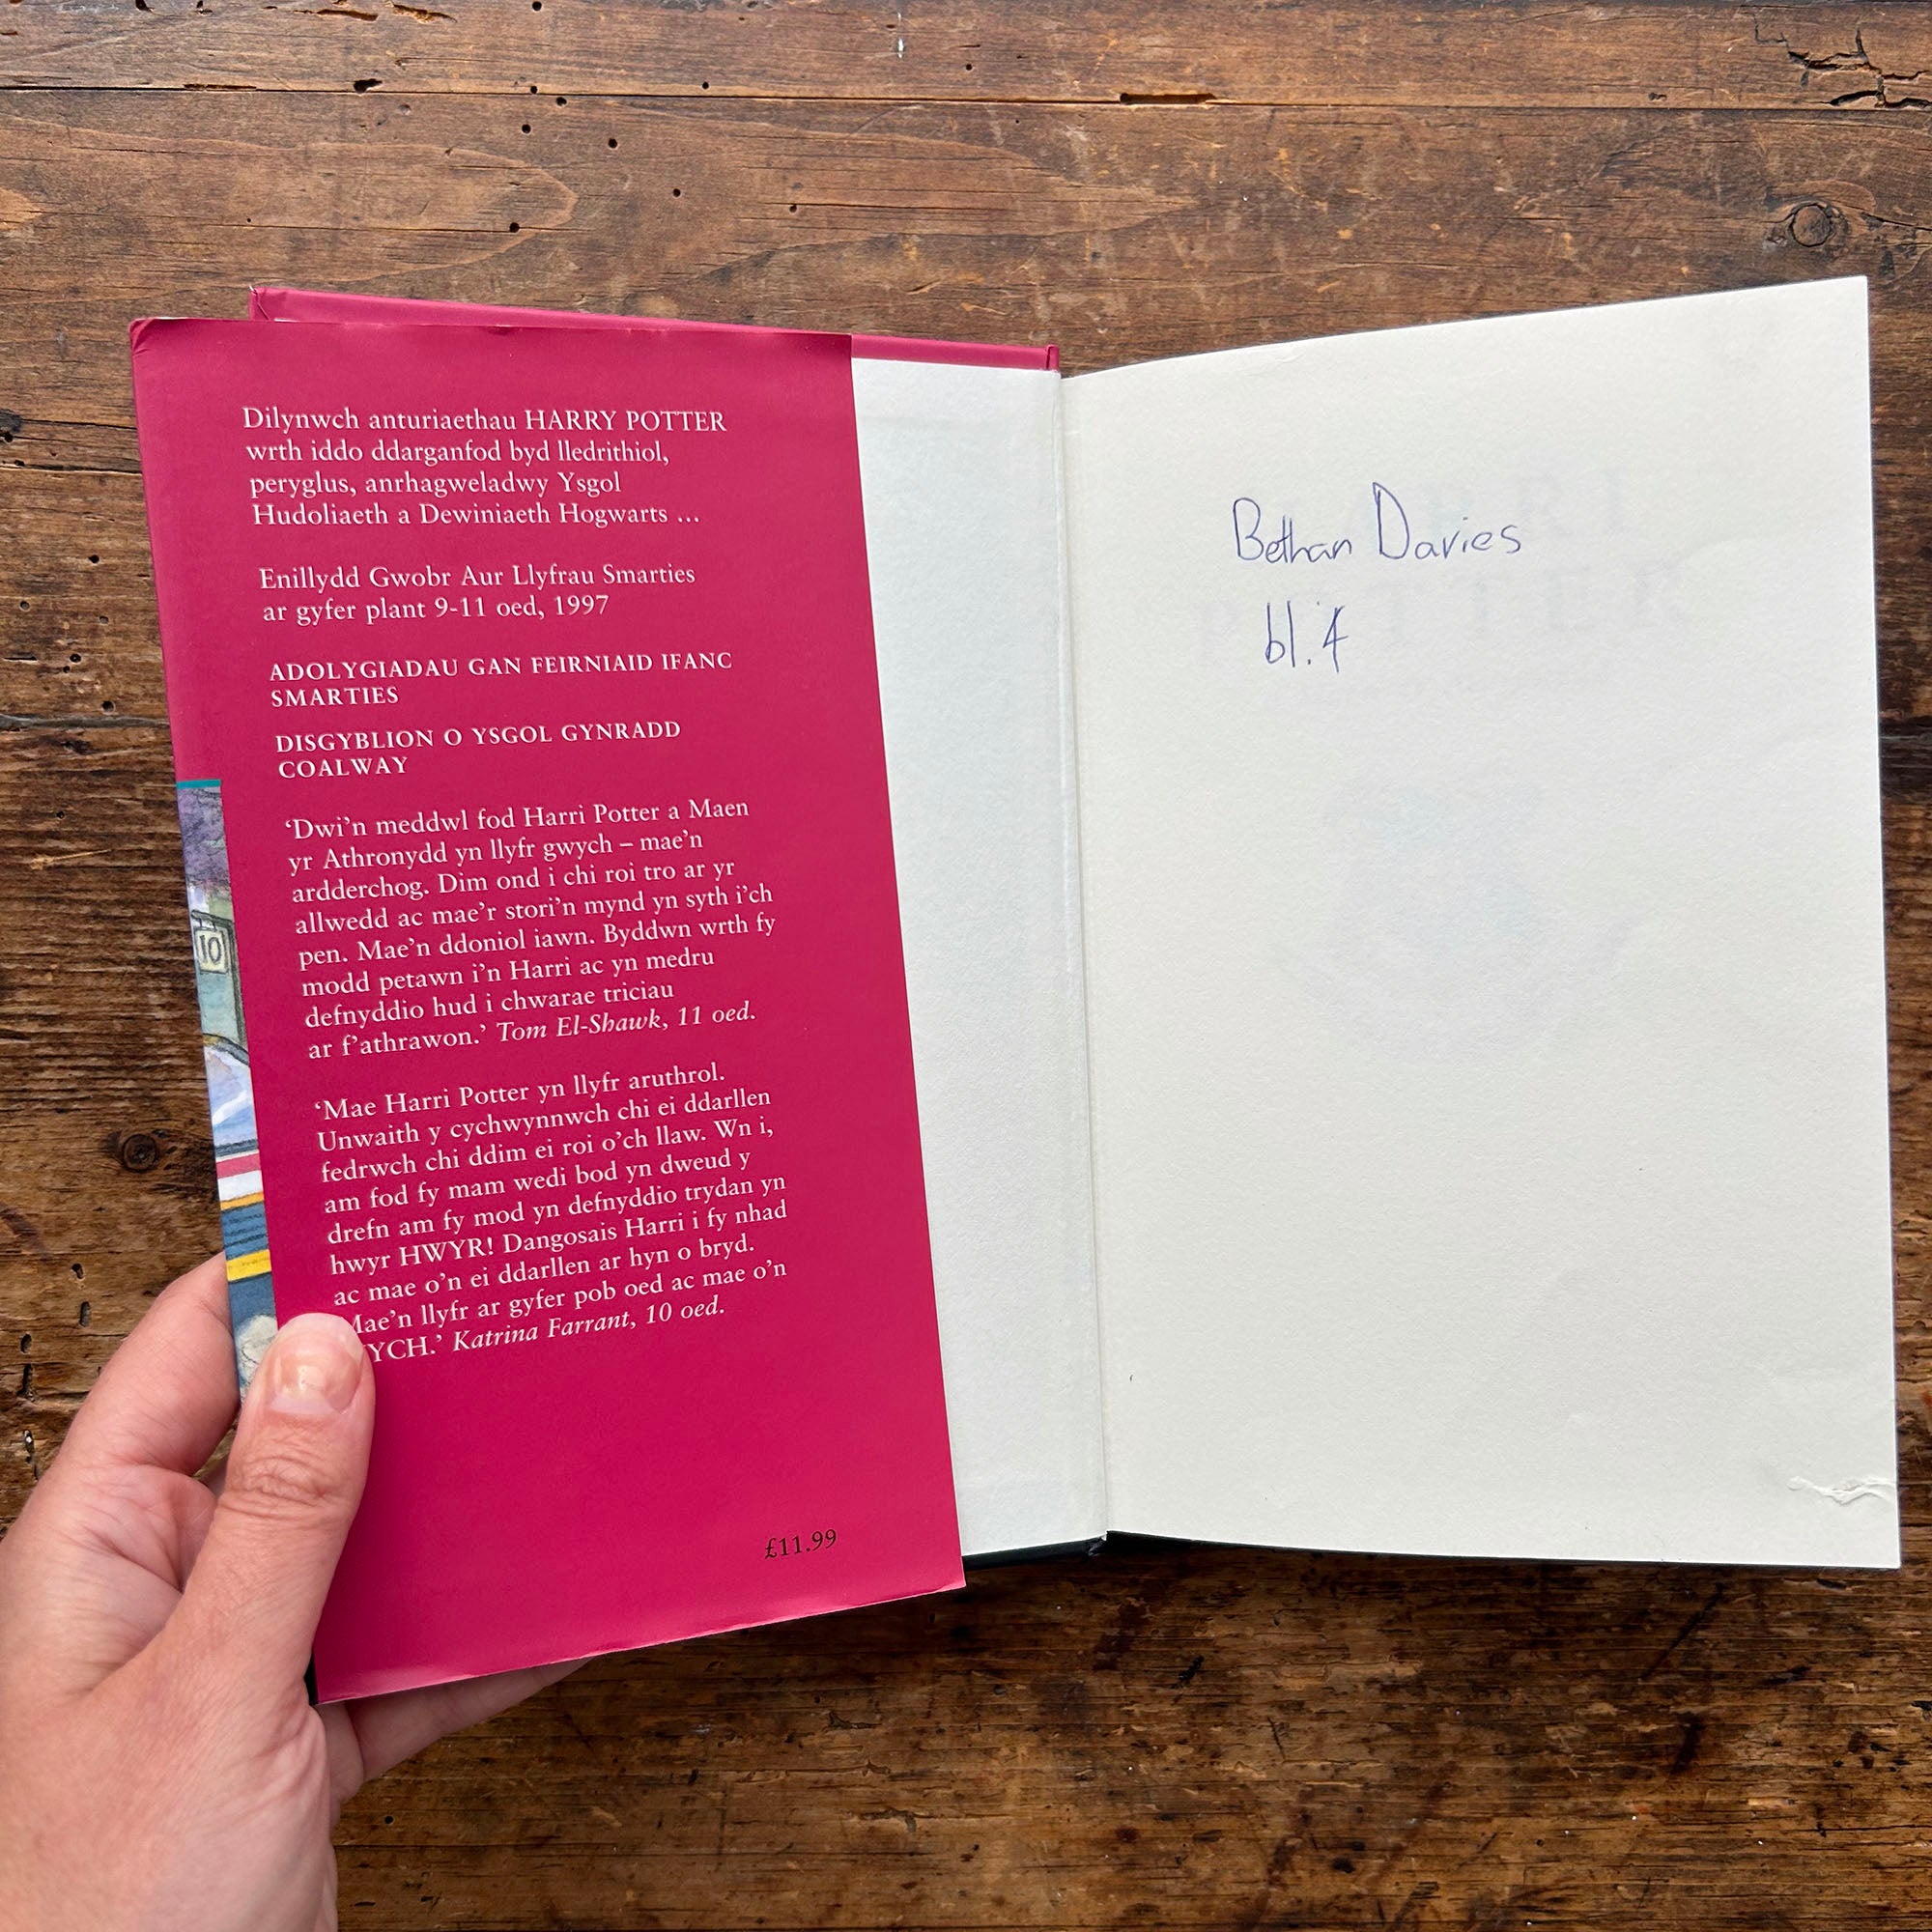 Dilynwch anturiaethau HARRY POTTER
wrth iddo ddarganfod byd lledrithiol,
peryglus, anrhagweladwy Ysgol
Hudoliaeth a Dewiniaeth Hogwarts ...
Enillydd Gwobr Aur Llyfrau Smarties
ar gyfer plant 9-11 oed, 1997
ADOLYGIADAU GAN FEIRNIAID IFANC
SMARTIES
DISGYBLION O YSGOL GYNRADD
COALWAY
‘Dwi’n meddwl fod Harri Potter a Maen
yr Athronydd yn llyfr gwych – mae’n
ardderchog. Dim ond i chi roi tro ar yr
allwedd ac mae’r stori’n mynd yn syth i’ch
pen. Mae’n ddoniol iawn. Byddwn wrth fy
modd petawn i’n Harri ac yn medru
defnyddio hud i chwarae triciau
ar f’athrawon.’ Tom El-Shawk, 11 oed.
‘Mae Harri Potter yn llyfr aruthrol.
Unwaith y cychwynnwch chi ei ddarllen
fedrwch chi ddim ei roi o’ch llaw. Wn i,
am fod fy mam wedi bod yn dweud y
drefn am fy mod yn defnyddio trydan yn
hwyr HWYR! Dangosais Harri i fy nhad
ac mae o’n ei ddarllen ar hyn o bryd.
Mae’n llyfr ar gyfer pob oed ac mae o’n
YCH.’ Katrina Farrant, 10 oed.
£11.99
10
Bethan Davies
bl. 4